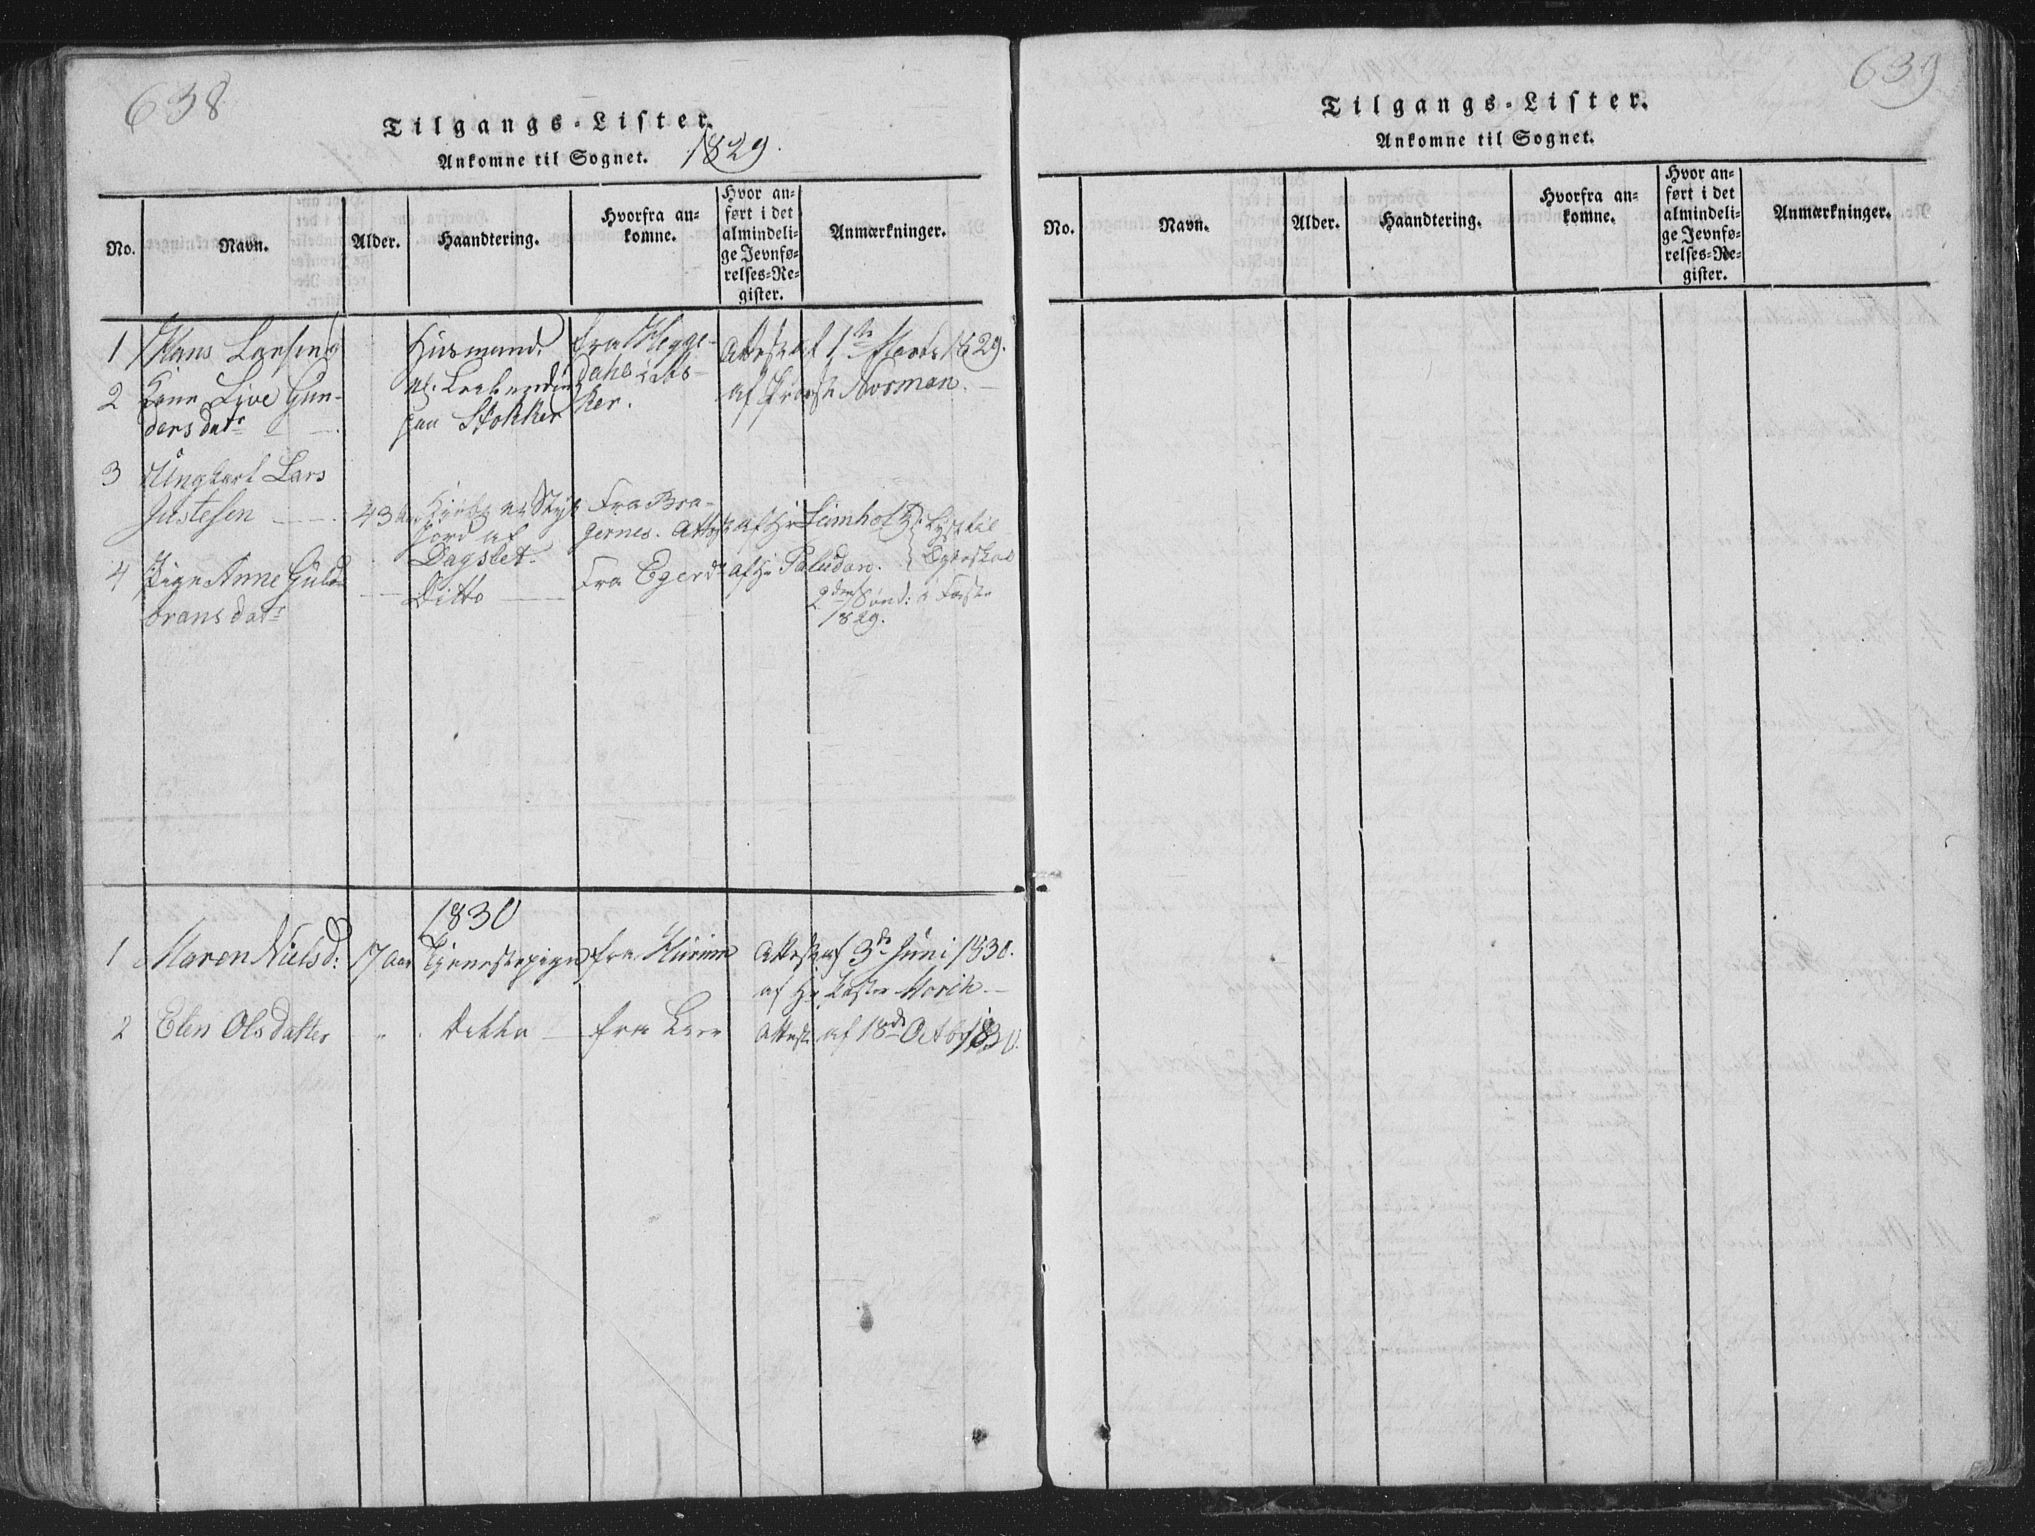 638
Tilgangs-Lister.
Ankomne til Sognet. 1829.
No. Navn. Alder. Haandtering. Hvorfra ankomne. Hvor anført i det almindelige Jevnførelses-Register. Anmærkninger.
1 Hans Larsen Huusmand fra Hegge- Attest af 1ste Marts 1829.
2 Kone Live Gun- dahls af Provst Norman.
dersdatr paa Stokker ker.
3 Ungkarl Lars
Justesen 43 Aar Fra Bra-
gernes. Attest af Hr
jord af
Dagslet
4 Pige Anne Guld- Ditto Fra Eger do af Hr Paludan. Egteskab
bransdatr 2den Sønd: i Faste
1829.
1830
1 Maren Nielsd: 17 Aar Tjenestepige fra Hurum Attest af 3de Juni 1830.
af Hr Pastor
2 Elen Olsdatter " Ditto fra Lier Attest af 18de Octbr 1830.
639
Tilgangs-Lister.
Ankomne til Sognet.
No. Navn. Alder. Haandtering. Hvorfra ankomne. Hvor anført i det almindelige Jevnførelses-Register. Anmærkninger.